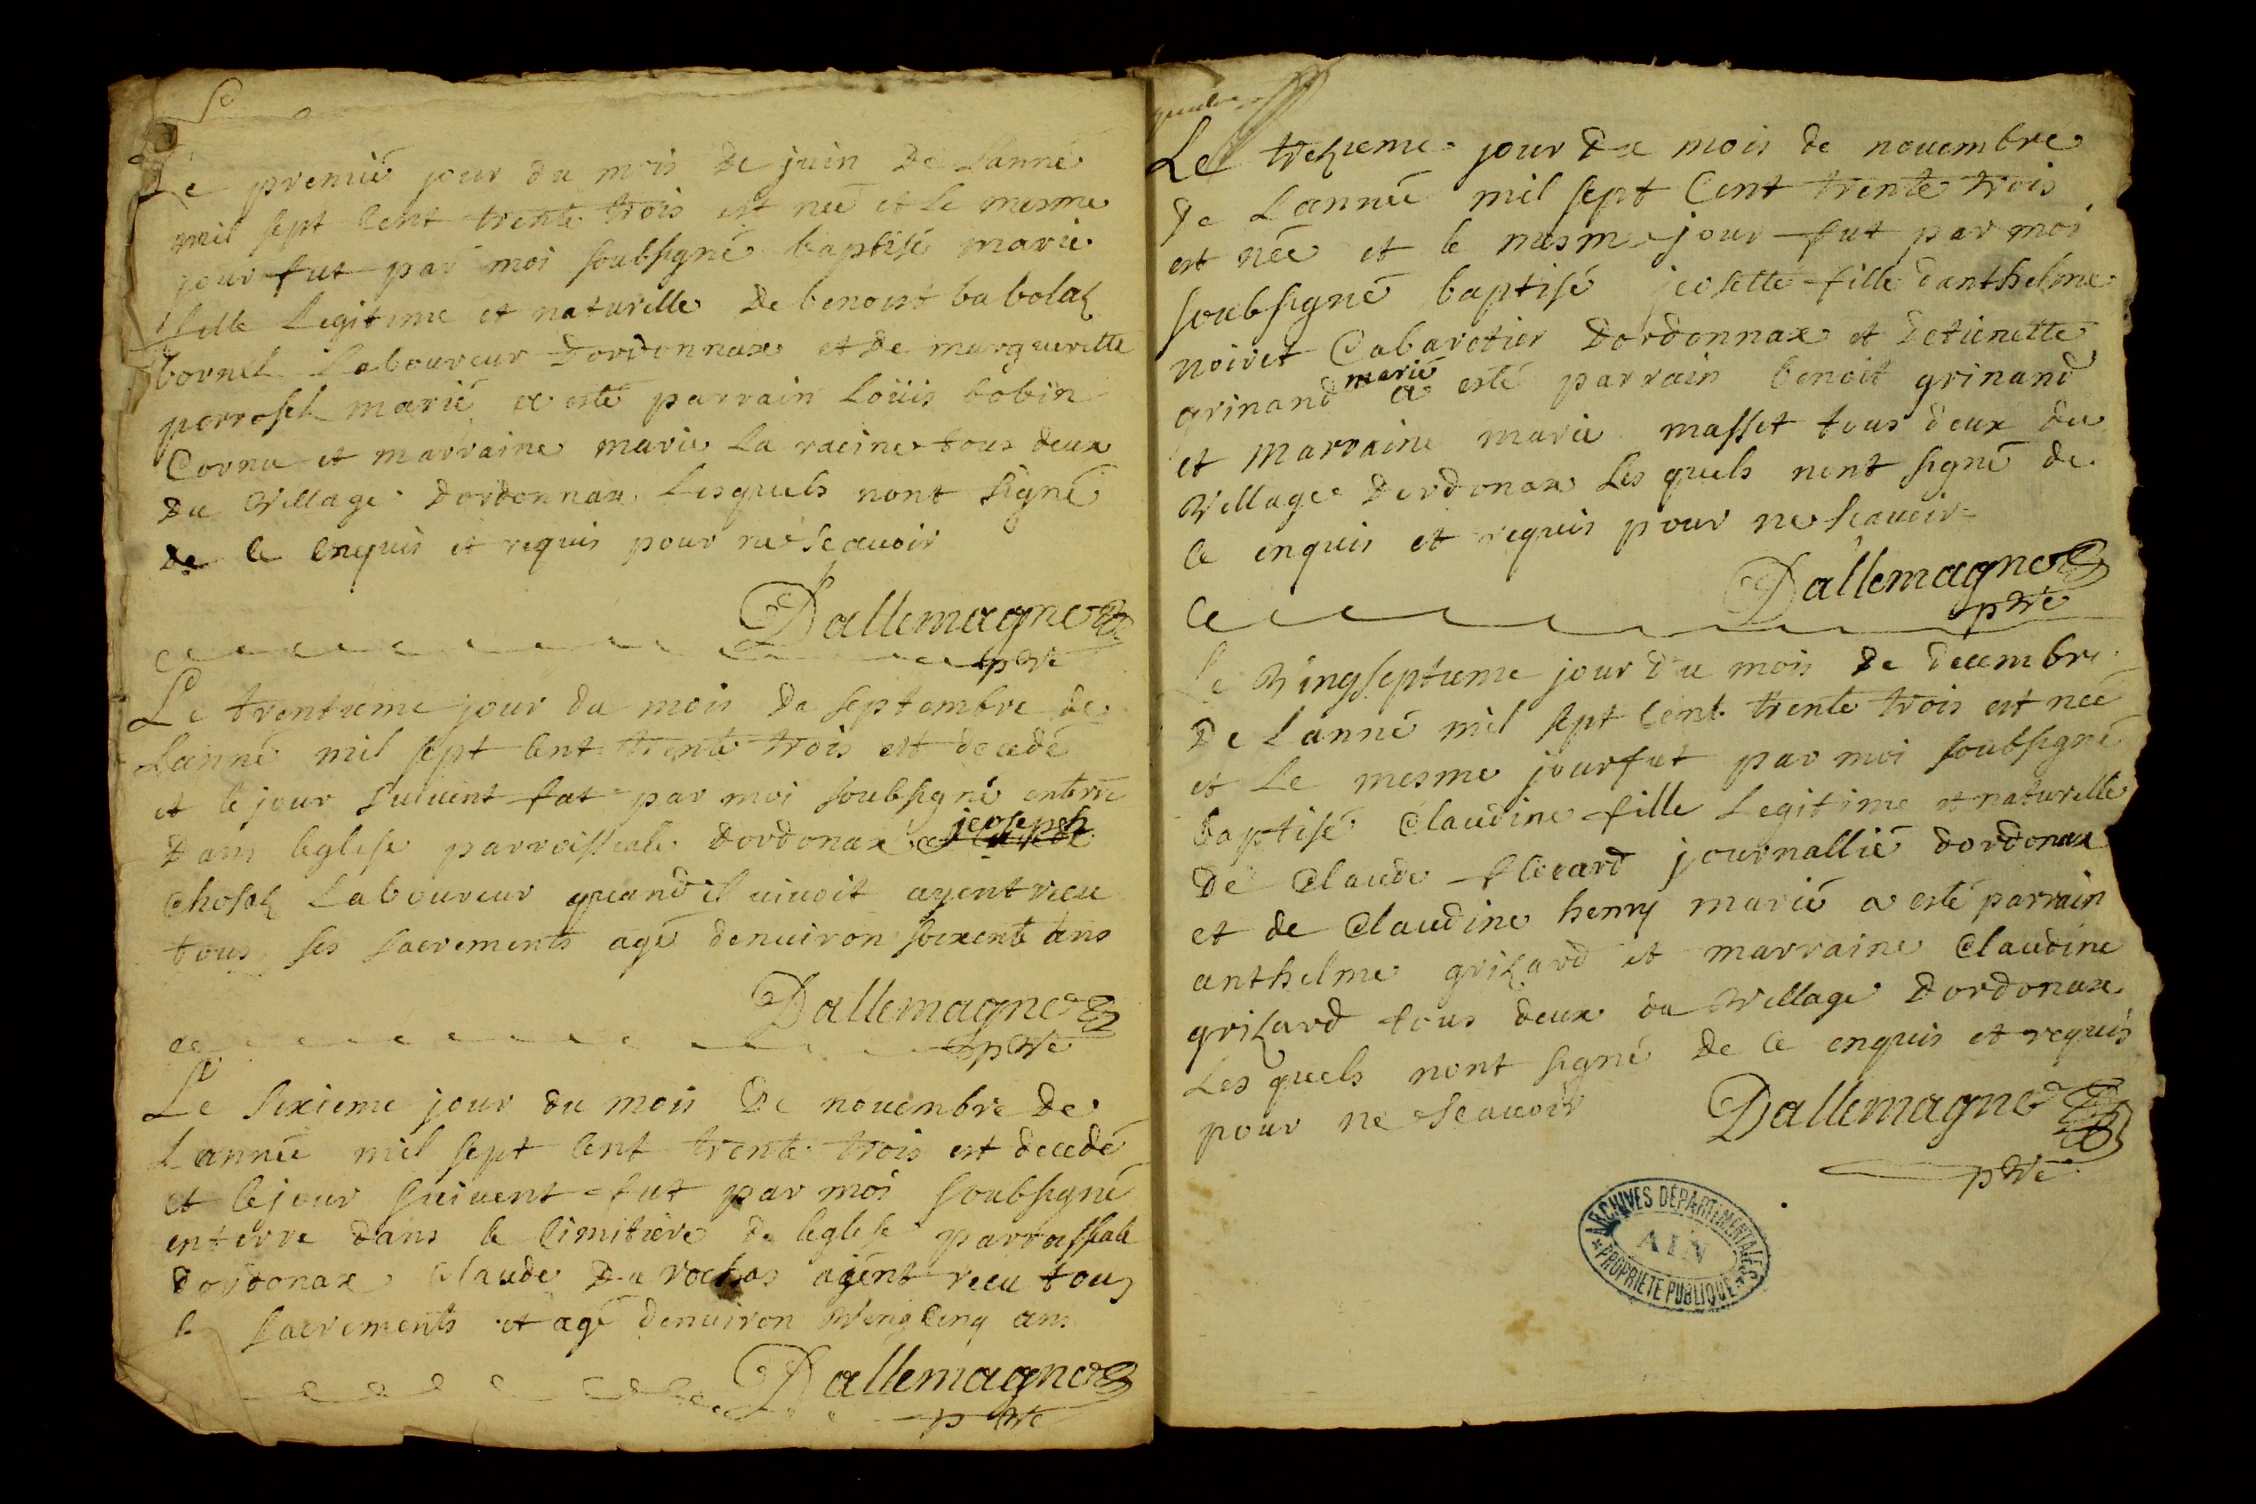 Le premié jour du mois de juin de Lanné
mil sept Cent trente trois est née et le mesme
jour fut par moi soubsigné baptisé marie
fille Legitime et naturelle de benoist babolaz
bornel Laboureur dordonnax et de margueritte
perrosel marié a esté parrain Loüis bobin
Cornu et marraine marie La racine tous deux
du Village dordonnax Lesquels nont signé
de Ce enquis et requis pour ne scauoir
Dallemagne
ptre
Le trentieme jour du mois de septembre de
Lanné mil sept Cent trente trois est decedé
et le jour suiuent fut par moi soubsigné enterré
dans leglise parroissiale dordonax jeoseph
Chosaz Laboureur quand il uiuoit ayent recu
tous ses sacrements agé denuiron soixente ans
Dallemagne
ptre
Le sixieme jour du mois de nouembre de
Lannée mil sept Cent trente trois est decedé
et le jour suiuent fut par moi soubsigné
enterre dans le Cimitiere de leglise parroissiale
dordonax Claude Du rochas ayent recu tous
le sacrements et agé denuiron Vingt Cinq ans
Dallemagne
ptre
Le trezieme jour du mois de nouembre
de Lannée mil sept Cent trente trois
est née et le mesme jour fut par moi
soubsigné baptisé jeosette fille danthelme
noiret Cabaretier dordonnax et detienette
grinand marié a esté parrain benoit grinand
et marraine marie masset tous deux du
Village dordonax Les quels nont signé de
Ce enquis et requis pour ne scauoir
Dallemagne
ptre
Le Vingseptieme jour du mois de decembre
de Lanné mil sept Cent trente trois est née
et Le mesme jour fut par moi soubsigné
baptisé Claudine fille Legitime et naturelle
de Claude journallié dordonax
et de Claudine henry marié a esté parrain
anthelme grizard et marraine Claudine
grizard tous deux du Village dordonax
Les quels nont signé de Ce enquis et requis
pour ne scauoir
Dallemagne
ptre
ARCHIVES DÉPARTEMENTALES
AIN
PROPRIÉTÉ PUBLIQUE